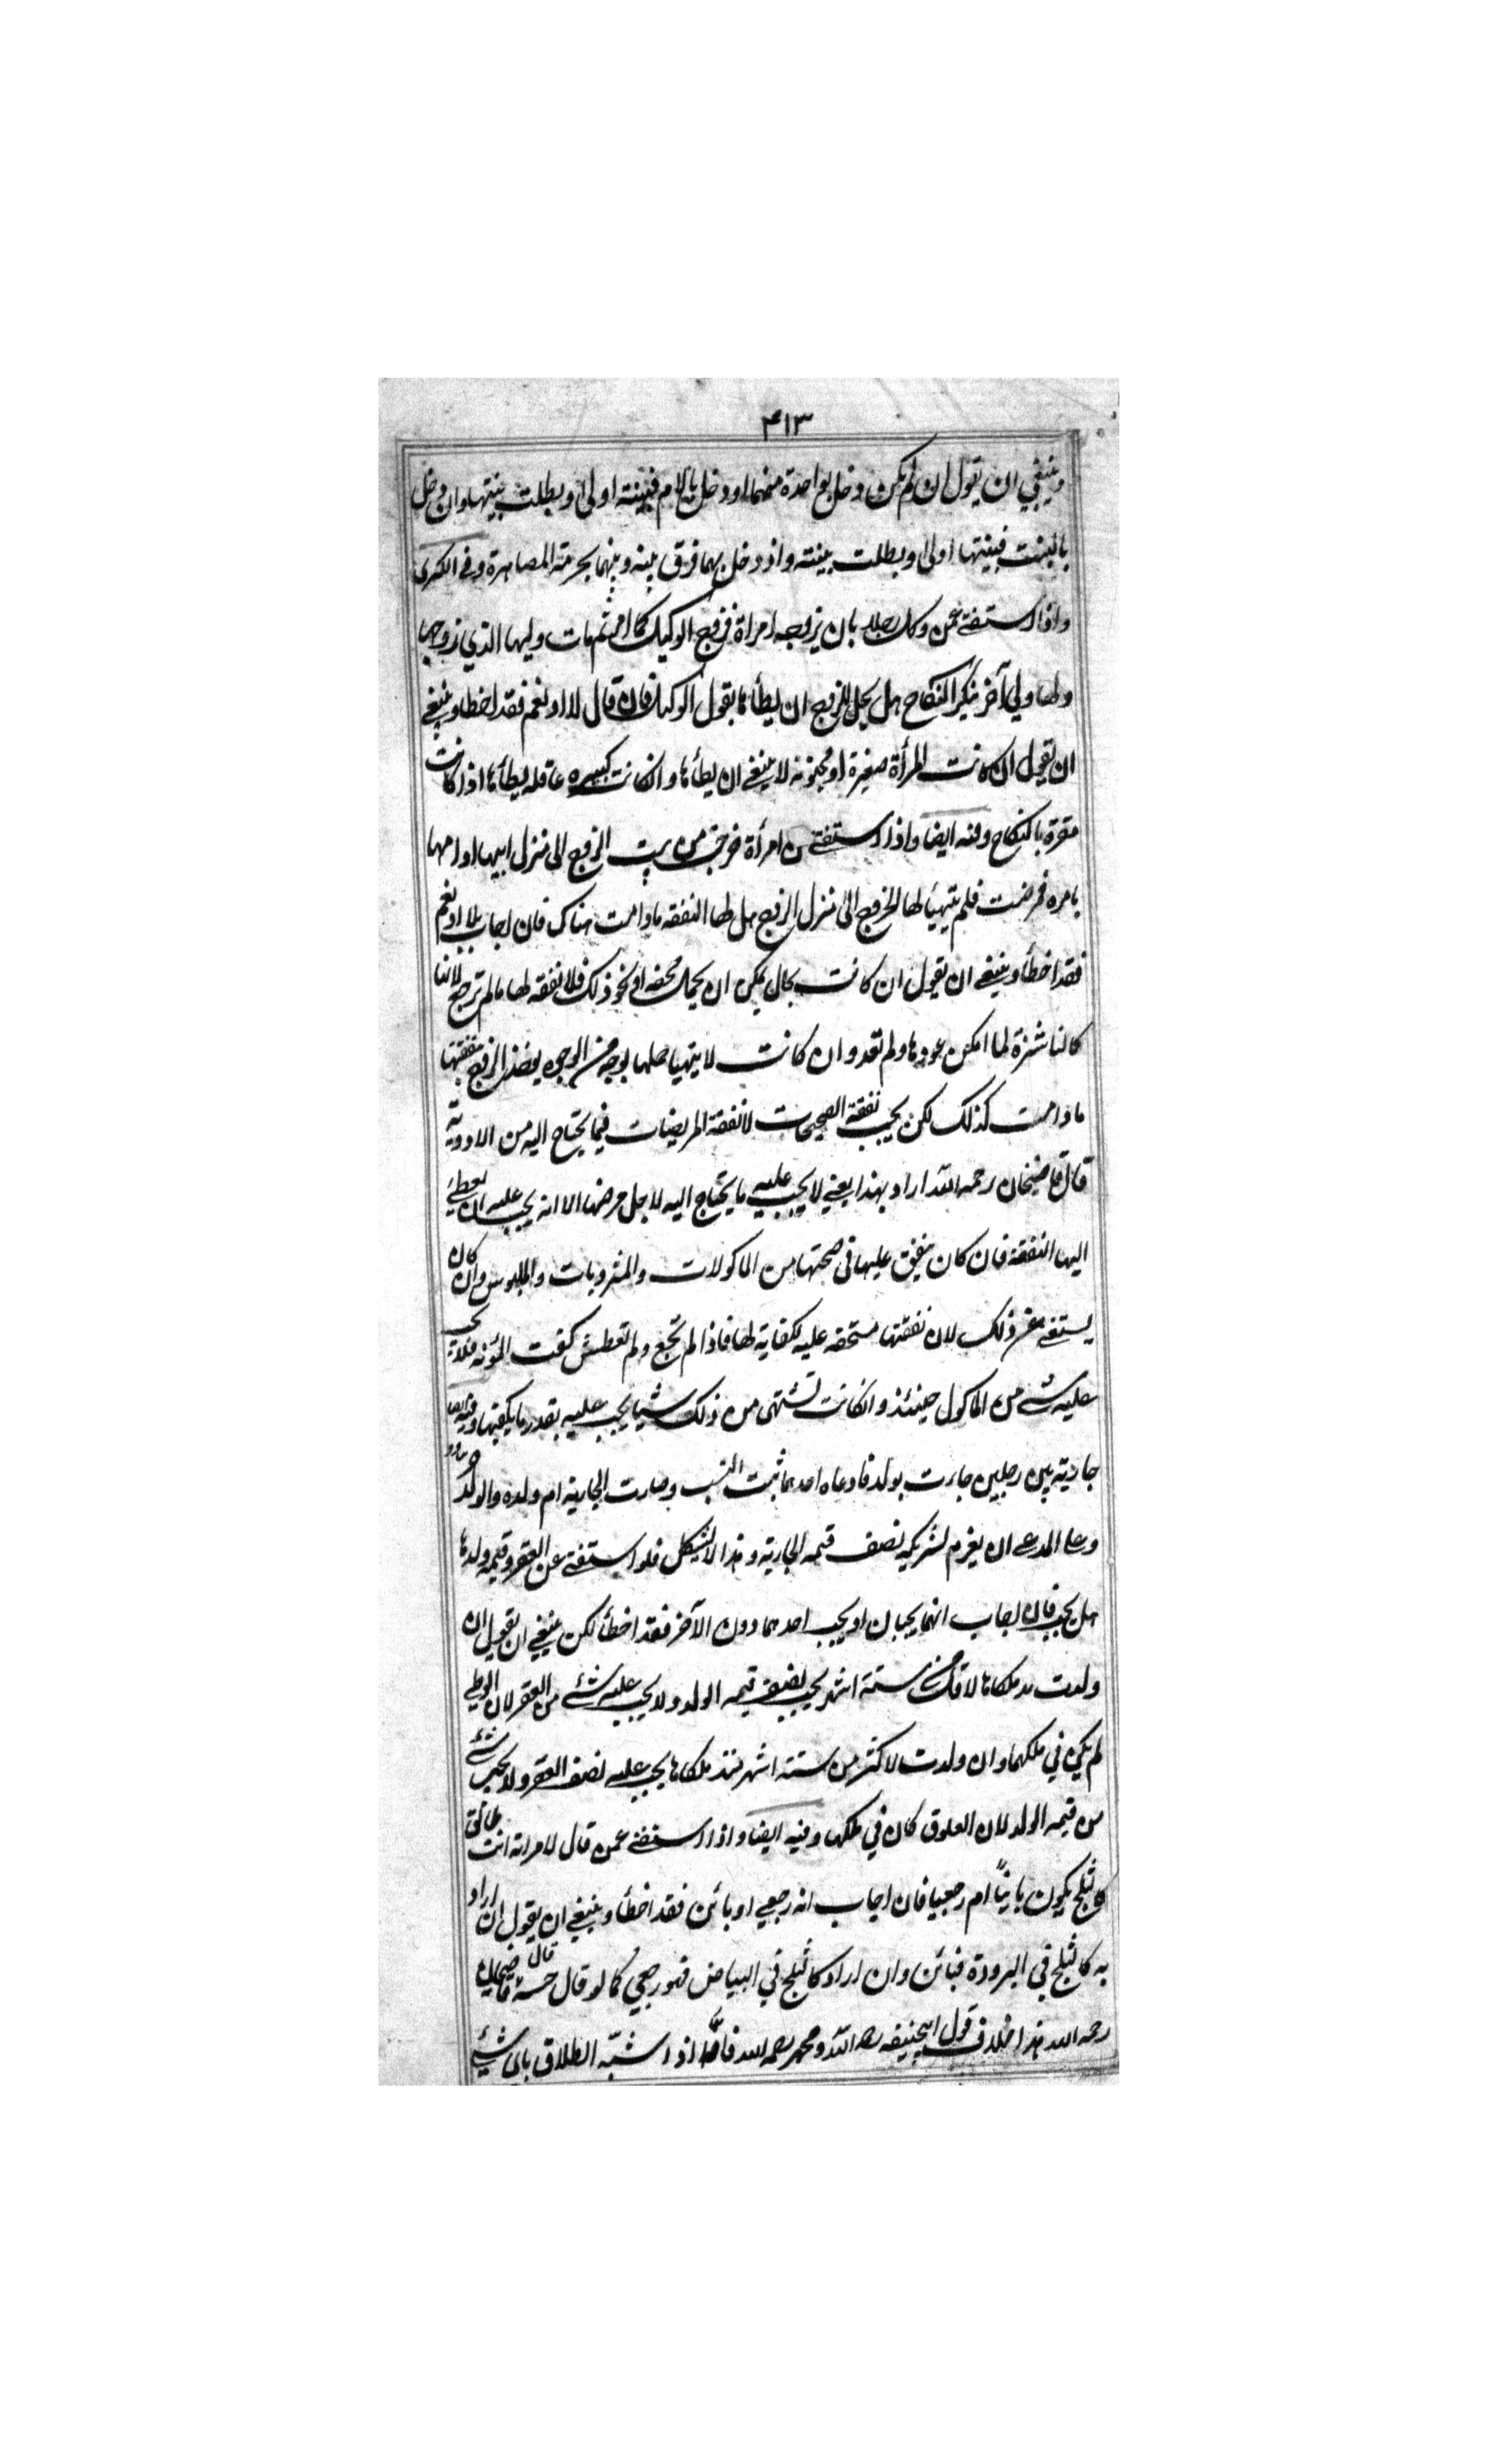 ۴۱۳
وينبغي ان يقول ان لم يكن دخل بواحدة منهما او دخل بالام فبينته اولى وبطلت بينتها وان دخل
بالبنت فبينتها اولى وبطلت بينته واذ دخل بهما فرق بينه وبينهما بحرمة المصاهرة وفي الكبرى
واذا استفتي عمن وكل رجلا بان يزوجه امراة فزوج الوكيل كما امر ثم مات وليها الذي زوجها
ولها ولي آخر ينكر النكاح هل يحل للزوج ان يطأها بقول الوكيل فان قال لا او نعم فقد اخطا وينبغي
ان يقول ان كانت المرأة صغيرة او مجنونة لا ينبغي ان يطأها وانكانت كبيرة عاقله يطأها اذا كانت
مقرة بالنكاح وفيه ايضا واذا استفتي من امرأة خرجت من بيت الزوج الى منزل ابيها او امها
بامره فمرضت فلم يتهيأ لها الخروج الى منزل الزوج هل لها النفقه ما دامت هناك فان اجاب بلا او نعم
فقد اخطأ وينبغي ان يقول ان كانت بحال يمكن ان يحمل محفه او نحو ذلك فلا نفقه لها ما لم ترجع لانها
كالناشزة لما امكن عودها ولم تعد وان كانت لا يتهيا حملها بوجه من الوجوه يوخذ الزوج بنفقتها
ما دامت كذلك لكن يجب نفقة الصحيحات لا نفقة المريضات فيما يحتاج اليه من الادوية
قال قاضيخان رحمه الله اراد بهذا يعني لا يجب عليه ما يحتاج اليه لاجل مرضها الا انه يجب عليه ان يعطي
اليها النفقة فان كان ينفق عليها في صحتها من الماكولات والمشروبات والملبوس وان كان
يستغني عن ذلك لان نفقتها مستحقه عليه لكفاية لها فاذا لم تجع ولم تعطش كفت المؤنه فلا يجب
عليه شئ من الماكول حينئذ وانكانت تشتهي من ذلك شيا يجب عليه بقدر ما يكفيها وفيه ايضا
جارية بين رجلين جاءت بولد فادعاه احدهما ثبت النسب وصارت الجارية ام ولده والولد حر
وعلى المدعي ان يغرم لشريكه نصف قيمه الجارية وهذا لا يشكل فلو استفتي عن العقر وقيمه ولدها
هل يجب فان اجاب انهما يجبان او يجب احدهما دون الآخر فقد اخطأ لكن ينبغي ان يقول ان
ولدت مد ملكاها لاقل من ستة اشهر يجب نصف قيمه الولد ولا يجب عليه شئ من العقر لان الوطي
لم يكن في ملكهما وان ولدت لاكثر من ستة اشهر منذ ملكاها يجب عليه نصف العقر ولا يجب شئ
من قيمه الولد لان العلوق كان في ملكها وفيه ايضا واذا استفتي عمن قال لامراته انت طالق
كالثلج يكون باينًا ام رجعيا فان اجاب انه رجعي او بائن فقد اخطأ وينبغي ان يقول ان اراد
به كالثلج في البرودة فبائن وان اراد كالثلج في البياض فهو رجعي كما لو قال حسنة قال قاضيخان
رحمه الله هذا خلاف قول ابيحنيفه رحمه الله ومحمد رحمه الله فانهما اذا شبّه الطلاق باى شئ